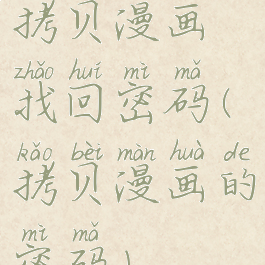 拷贝漫画
zhǎo huí mì mǎ
找回密码(
kǎo bèi màn huà de
拷贝漫画的
mì mǎ
密码)